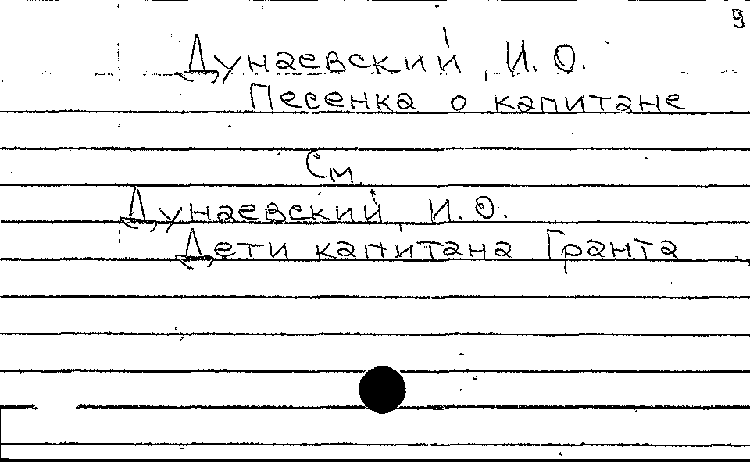 9
Дунаевский, И. О.
Песенка о капитане
См.
Дунаевский, И. О.
Дети капитана Гранта